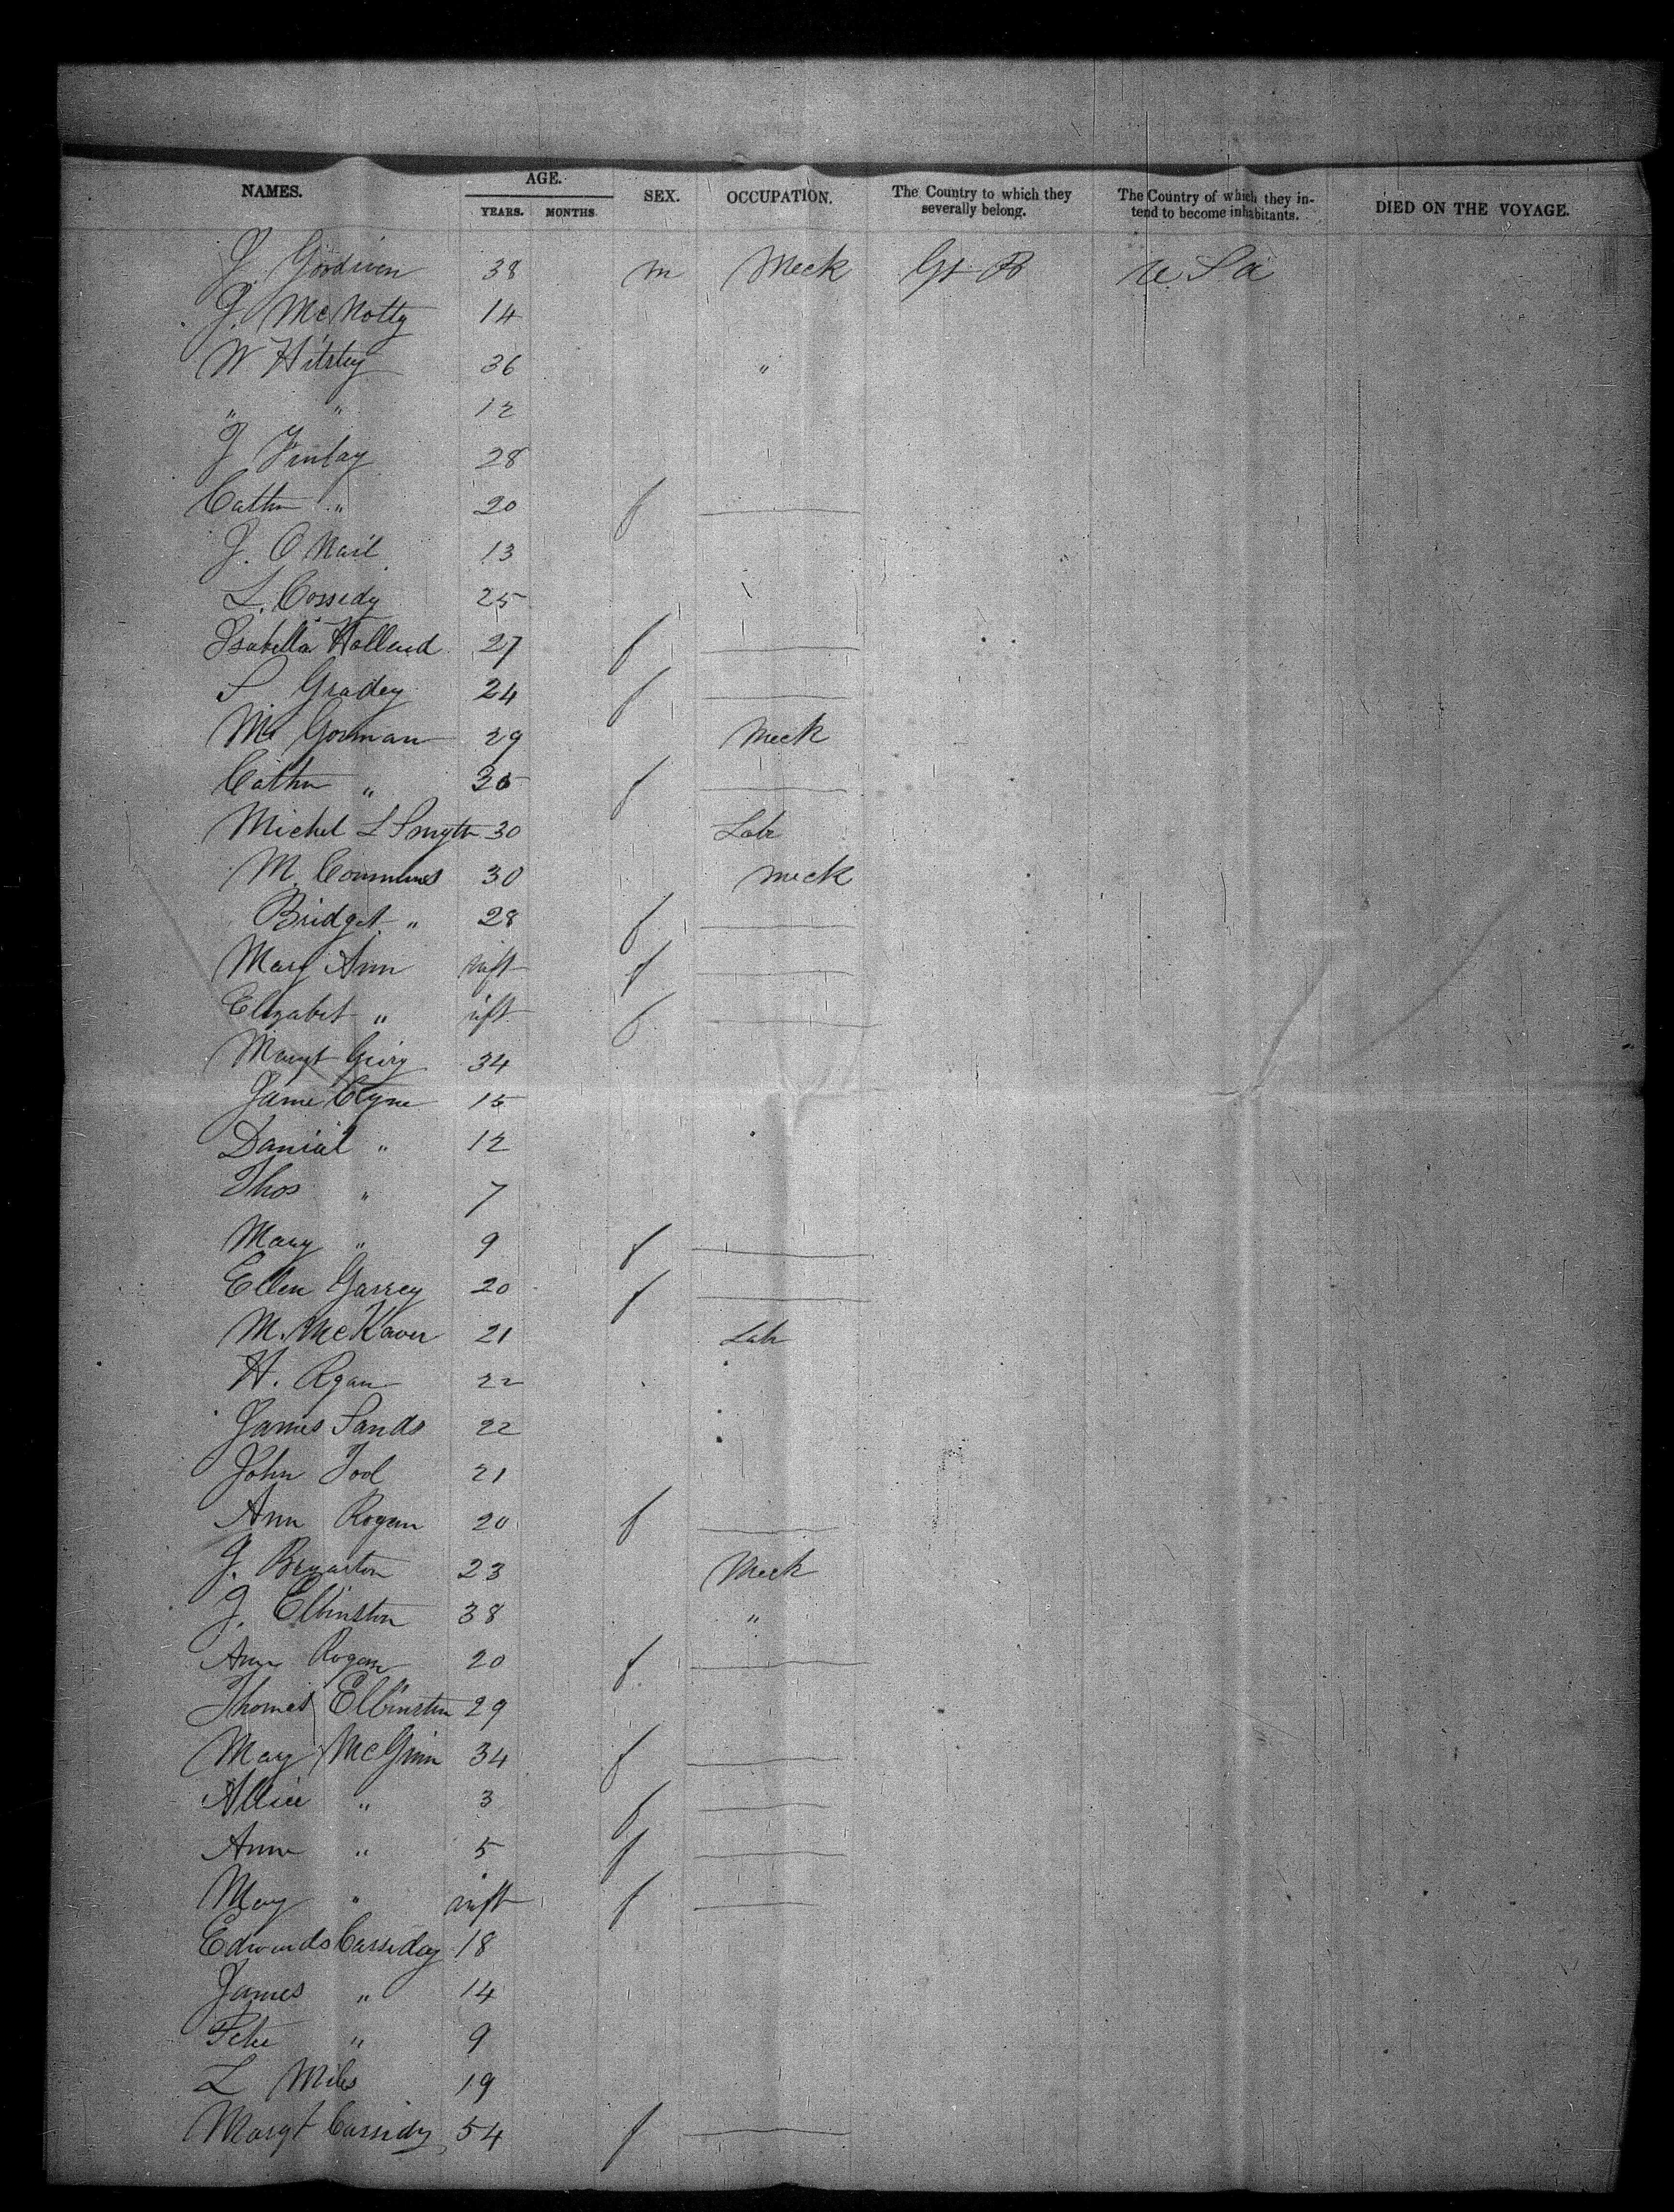 NAMES. AGE. SEX. OCCUPATION. The Country to which they severally belong. The Country of which they intend to become inhabitants. DIED ON THE VOYAGE.
YEARS. MONTHS
J. 38 m Meck Gt B U S a
J. McNotty 14
W 36 "
" " 12
J Finlay 28
Cathn " 20 f
J. O Nail 13
L. Cossedy 25
Isabella Holland 27 f
S Gradey 24 f
Mc Gorman 29 Meck
Cathn " f
Michel L Smyth 30 Labr
M. 30 meck
Bridget " 28 f
Mary Ann inft f
Elizabet " inft f
Margt 34
Jame 15
Danial " 12
Thos " 7
Mary " 9 f
Ellen Garrey 20 f
M. McKaver 21 Labr
H. Rgan 22
James Sands 22
John Tool 21
Ann Rogan 20 f
J. 23 Meck
J. Elbinston 38 "
Ann Rogan 20 f
Thomas Elbinston 29
May McGinn 34 f
Allice " 3 f
Ann " 5 f
May " inft f
Edwards Cassiday 18
James " 14
Peter " 9
L Miles 19
Margt Cassidy 54 f